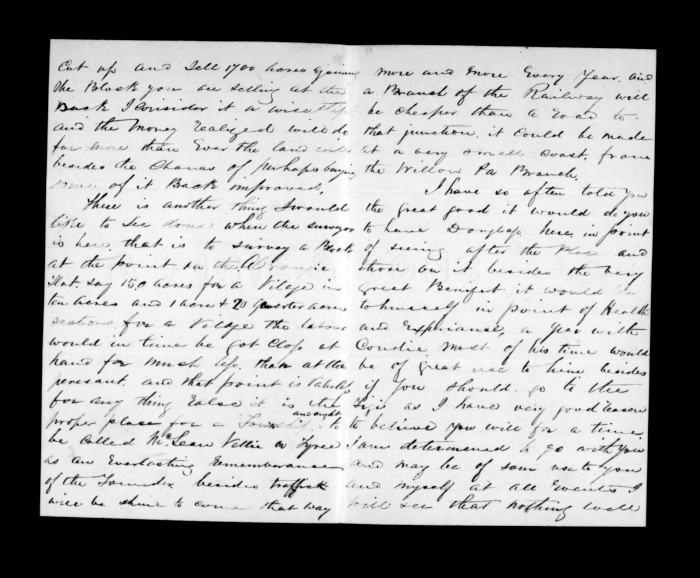 Cut up and Sell 1700 acres Ajoining
the Block you are selling at the
Back I Consider it a wise step
and the money realized will do
far more than Ever the land will
besides the Chance of perhaps buying
some of it Back improved.
There is another thing I would
like to See done when the surveyor
is here, that is to survey a Block
at the point in the
flat, say 150 acres for a Vilage in
ten acres and 1 acre & 20 quarter acres
sections for a Viladge the labour
would in time be got Clos at
hand for much less than at the
peresant. and that point is
for any thing Ealse it is the
proper place for a and aught to
be Called McLean Vettie or Tyree
as an Everlasting Rememberance
of the Founder besides traffick
will be shure to come that way
more and more Every Year. and
a Branch of the Railway will
be cheaper than a Road to
that junction, it could be made
at a very small Coast, from
the Willow Pa Branch.
I have so often told you
the great good it would do you
to have Douglas here, in point
of seeing after the Place and
those on it besides the very
great Benifit it would be
to himself in point of Health
and Expiriance, a Year with
Condie. Most of his time would
be of great use to him besides
if you should go to the
Fiji as I have very good reason
to believe you will for a time,
I am determined to go with you
and may be of som use to you
and myself at all Events I
will see that nothing well